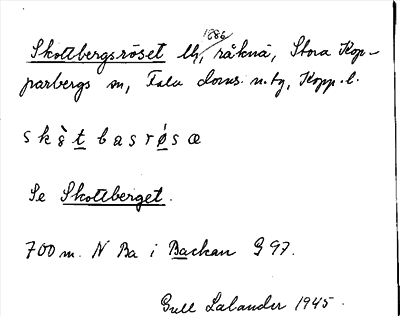 1886
Skottbergsröset lh, råknä, Stora Kop-
parbergs sn, Falu doms. n. tg, Kopp. l.
s k ò t b a s r ǿ s œ
Se Skottberget.
700 m. N Ba i Backan G 97.
Gull Lalander 1945.